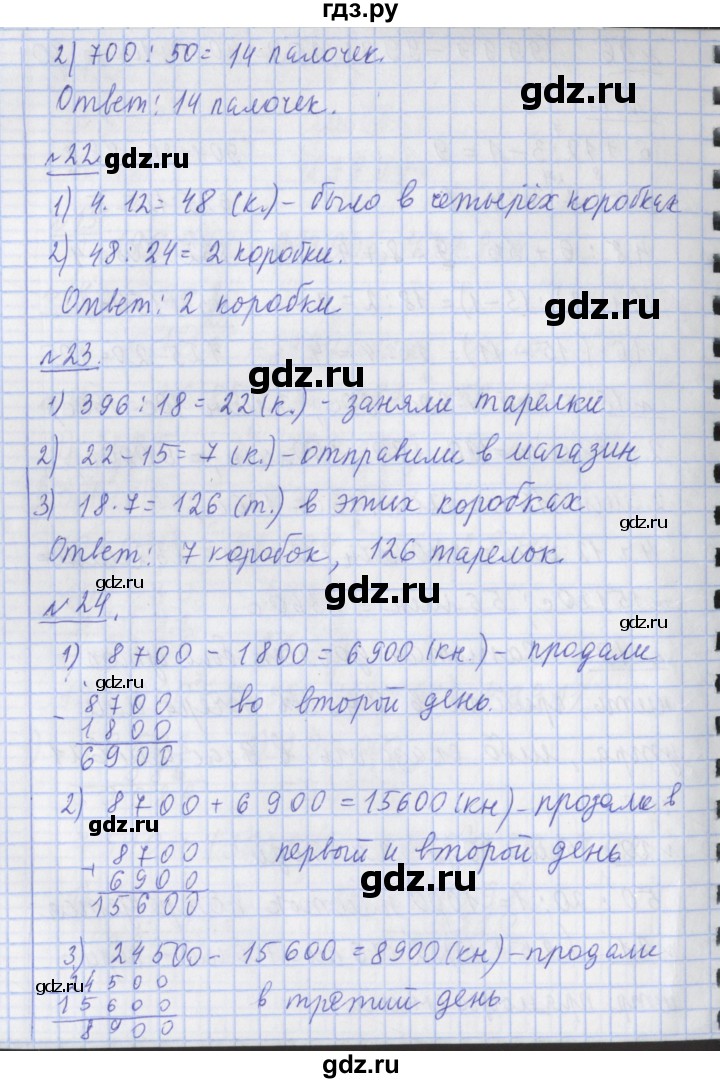 гдз.ру
2) 700 : 50 = 14 палочек.
Ответ: 14 палочек.
gdz.ru
№22
gdz.ru
1) 4 · 12 = 48 (к.) - было в четырёх коробках
gdz.ru
2) 48 : 24 = 2 коробки.
Ответ: 2 коробки
gdz.ru
№23.
gdz.ru
1) 396 : 18 = 22 (к.) - заняли тарелки
2) 22 - 15 = 7 (к.) - отправили в магазин
3) 18 · 7 = 126 (т.) в этих коробках
gdz.ru
Ответ: 7 коробок, 126 тарелок
gdz.ru
gdz.ru
№24.
gdz.ru
1) 8700 - 1800 = 6900 (кн.) - продали
во второй день.
- 8700
1800
6900
gdz.ru
2) 8700 + 6900 = 15600 (кн) - продали в
gdz.ru
первый и второй день
+ 8700
6900
15600
gdz.ru
3) 24500 - 15600 = 8900 (кн) - продали
в третий день
24500
gdz.ru
15600
8900
gdz.ru
gdz.ru